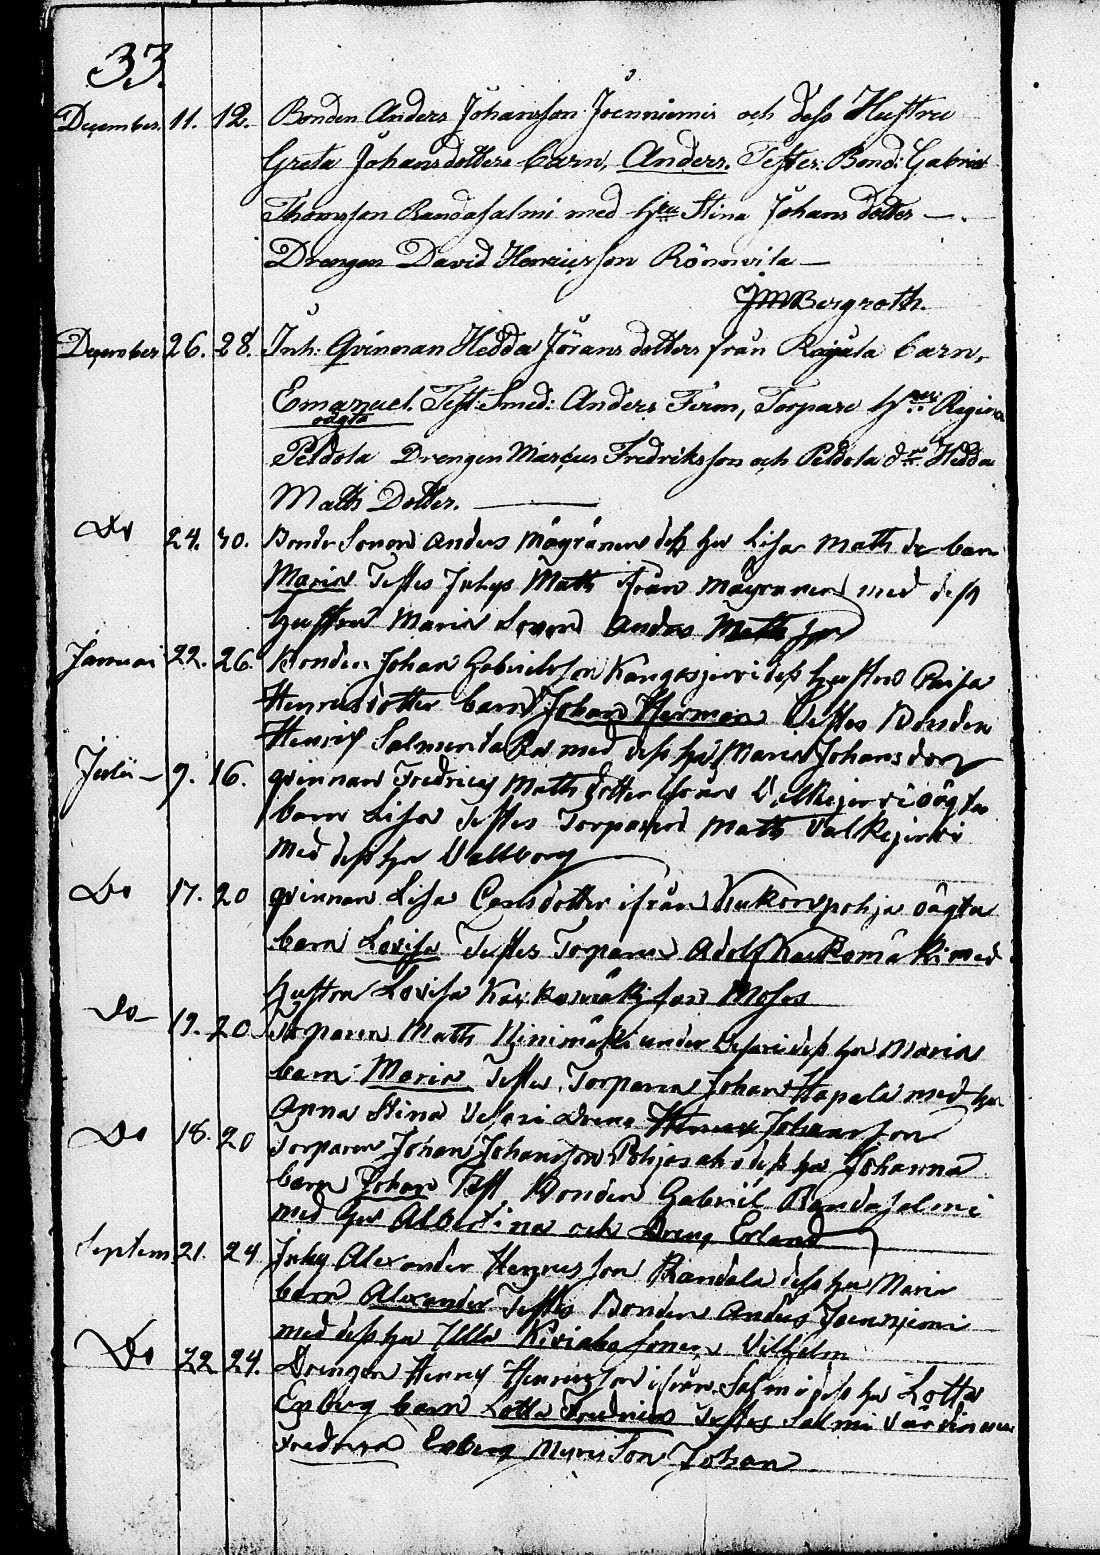 33.
December. 11. 12. Bonden Anders Johansson Joenniemi och dess Hustru
Greta Johansdotters barn, Anders. Testes: Bond: Gabriel
Thomsson Randasalmi med hru Stina Johans dotter —.
Drengen David Henricsson —
JM Bergroth.
December 26. 28. Inh: Qvinnan Hedda Jörans dotters från barn,
Emanuel. Test: Smed: Anders Ferm, Torpare Regina
oägta
Peldola Drengen Marcus Fredriksson och Peldola Hedda
Matts Dotter. ———
Do 24. 30. Bonde Sonen Anders Mägränen dess hu Lisa Matts dr barn
Maria Testes Inhys Matts ifrån Mägränen med dess
hustru Maria Sonen Anders Matts son
Januari 22. 26. Bonden Johan Gabrielsson Kangasjervi dess hustru Caisa
Henricsdotter barn Johan Herman Testes Bonden
Henric Salmenta med dess hu Maria Johansdotr
Julii — 9. 16. qvinnan Fredrica Matts dotter ifrån Valkejervi oägta
barn Lisa Testes Torparen Matts Valkejervi
med dess hu Vallborg
Do 17. 20 qvinnan Lisa Carlsdotter ifrån Kukonpohja oägta
barn Lovisa Testes Torparen Adolf Kaukomäki med
hustru Lovisa Kaukomäki Moses
Do 19. 20 Torparen Matts Kinimäki under dess hu Maria
barn Maria Testes Torparen Johan Hapala med hu
Anna Stina Dreng Henric Johansson
Do 18. 20 Torparen Johan Johansson Pohjasaho dess hu Johanna
barn Johan Test Bonden Gabriel Randasalmi
med hu Albertina och Dreng Erland
Septem 21. 24 Inhy Alexander Henricsson Randala dess hu Maria
barn Alexander Testes Bonden Anders Joenniemi
med dess hu Ulla Vilhelm
Do 22 24. Drengen Henric Henricsson ifrån Salmi dess hu Lotta
Enberg barn Lotta Fredrica Testes Salmi
Fredrica Enberg Son Johan